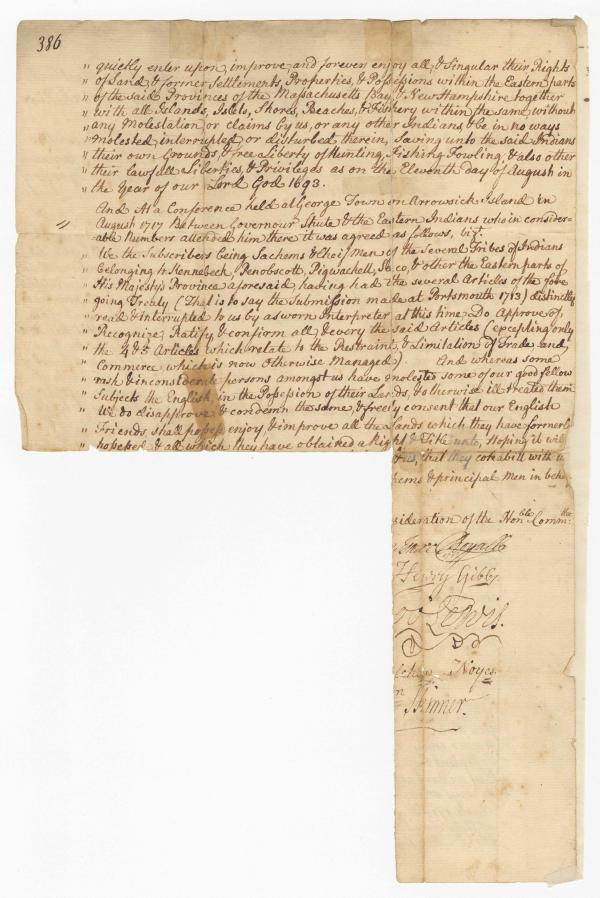 386
" quietly enter upon, improve, and forever enjoy all, & Singular their Rights
" of Land, & former Settlements, Properties, & Possessions within the Eastern parts
" of the said Provinces of the Massachusetts Bay & New Hampshire together
" with all Islands, Islets, Shores, Beaches, & Fishery within the same, without
" any Molestation or claims by us, or any other Indians, & be in no ways
" molested, interrupted, or disturbed therein, Saving unto the said Indians
" their own Grounds, & free Liberty of Hunting, Fishing, Fowling, & also other
" their lawfull Liberties, & Privileges as on the Eleventh day of August in
" the Year of our Lord God 1693.
And At a Conference held at George Town on Arrowsick Island in
" August 1717 Between Governour Shute & the Eastern Indians who in consider-
able Numbers attended him there it was agreed as follows, viz.
" We the Subscribers being Sachems & Chief Men of the Several Tribes of Indians
" Belonging to Kennebeck, Penobscott, Pigwachett, Saco, & other the Eastern parts of
" His Majesty's Province aforesaid, having had the several Articles of the fore
" going Treaty (That is to say the Submission made at Portsmouth 1713) distinctly
" read & Interrupted to us by a sworn Interpreter at this time, Do Approve of,
" Recognize, Ratify & confirm all & every the said Articles (excepting only
" the 4 & 5 Articles which relate to the Restraint, & Limitation of Trade and
" Commerce which is now Otherwise Managed) And whereas some
" rash & inconsiderate persons amongst us have molested some of our good fellow
" Subjects the English, in the Possession of their Lands, & otherwise ill treated them
" We do disapprove & condemn the same, & freely consent that our English
" Friends shall possess enjoy & improve all the Lands which they have formerly
" possessed & all which they have obtained a Right & Title unto, Hoping it will
us, that they cohabit with u
hems & principal Men in beha
sideration of the Honble Commttee
Royall
Henry Gibbs
Lewis.
Noyes
n Skinner.